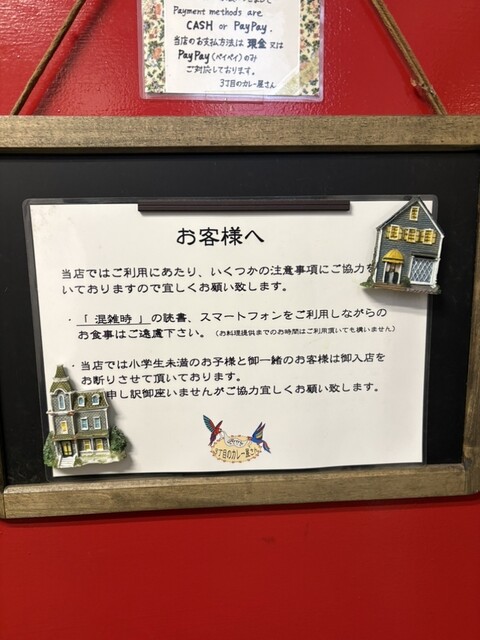 Payment methods are
CASH or PayPay.
当店のお支払方法は 現金 又は
PayPay(ペイペイ)のみ
ご対応しております。
3丁目のカレー屋さん
お客様へ
当店ではご利用にあたり、いくつかの注意事項にご協力を
いておりますので宜しくお願い致します。
・「 混雑時 」の読書、スマートフォンをご利用しながらの
お食事はご遠慮下さい。(お料理提供までのお時間はご利用頂いても構いません)
・当店では小学生未満のお子様と御一緒のお客様は御入店を
お断りさせて頂いております。
申し訳御座いませんがご協力宜しくお願い致します。
3丁目のカレー屋さん